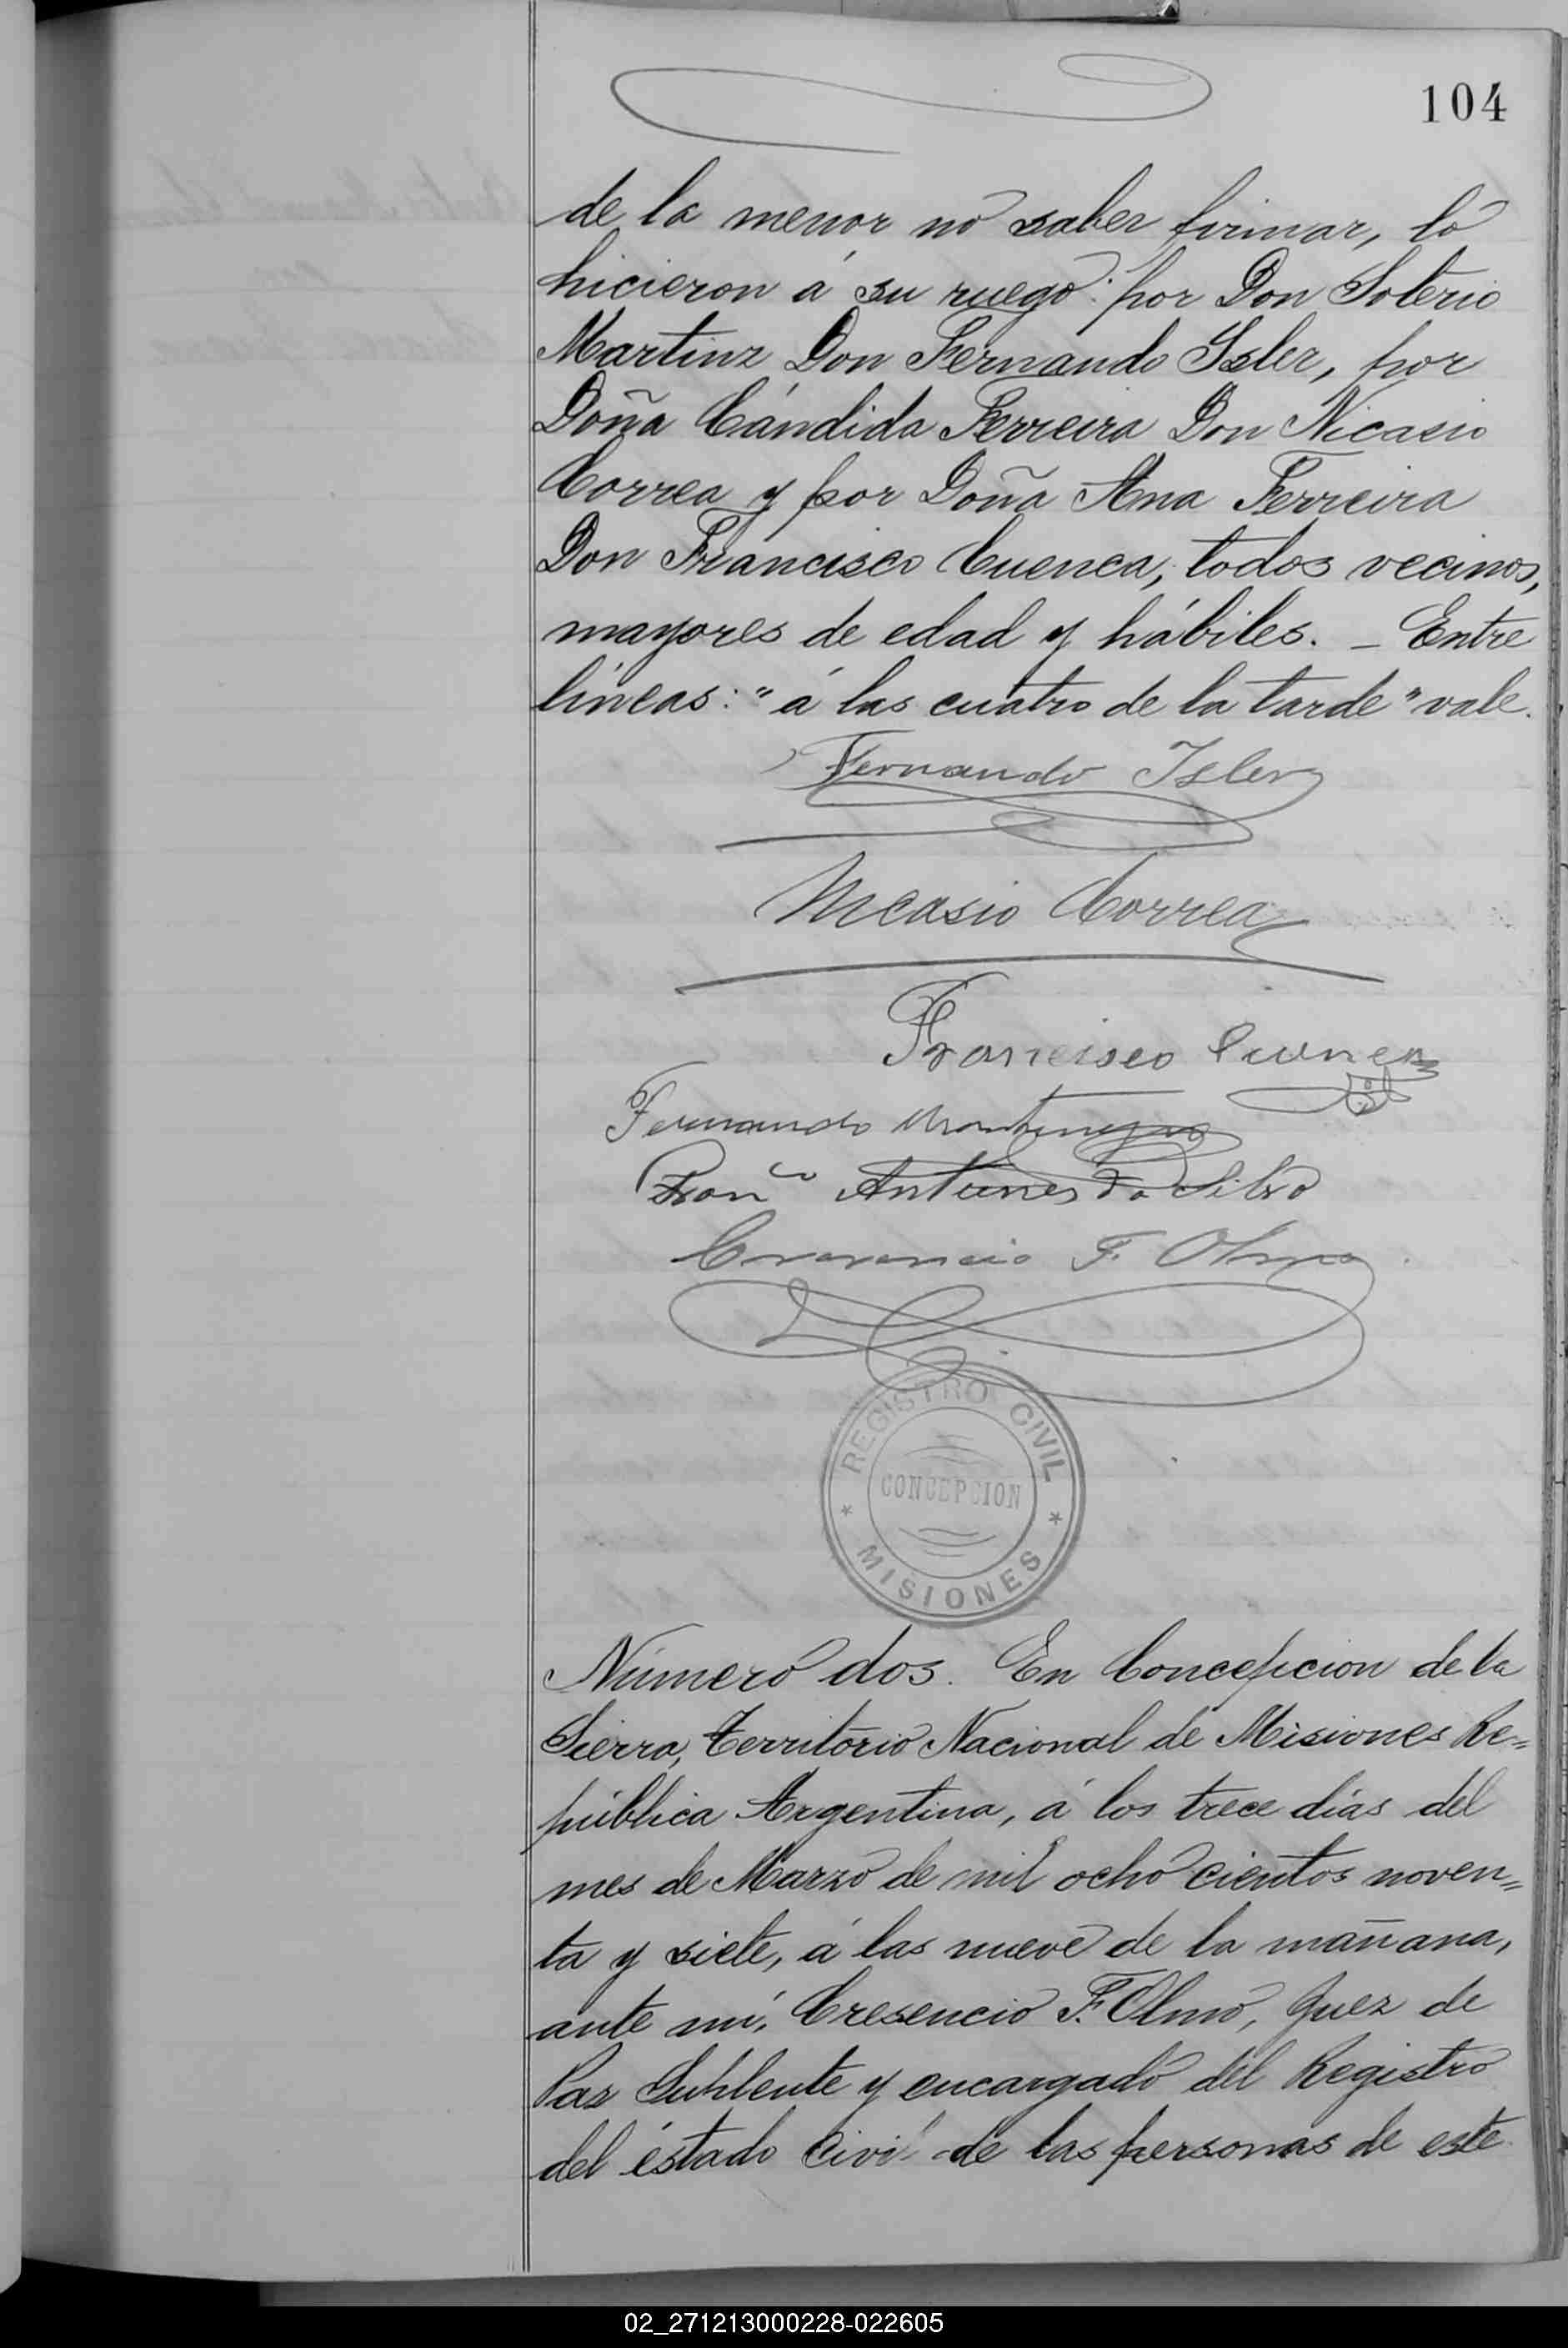 104
de la menor no saber firmar, lo
hicieron á su ruego: por Don Soterio
Martinz Don Fernando Isler, por
Doña Cándida Ferreira Don Nicasio
Correa y por Doña Ana Ferreira
Don Francisco Cuenca, todos vecinos,
mayores de edad y hábiles. _ Entre
líneas: "á las cuatro de la tarde" vale.
Fernando Isler
Nicasio Correa
Francisco Cuenca
Fernando Montenegro
Franco Antunes da Silva
Cresencio F. Olmo
REGISTRO CIVIL
CONCEPCION
* MISIONES *
Número dos. En Concepcion de la
Sierra, Territorio Nacional de Misiones Re=
pública Argentina, á los trece días del
mes de Marzo de mil ocho cientos noven=
ta y siete, á las nueve de la mañana,
ante mí, Cresencio F. Olmo, Juez de
Paz Suplente y encargado del Registro
del éstado Civil de las personas de este
02_271213000228-022605